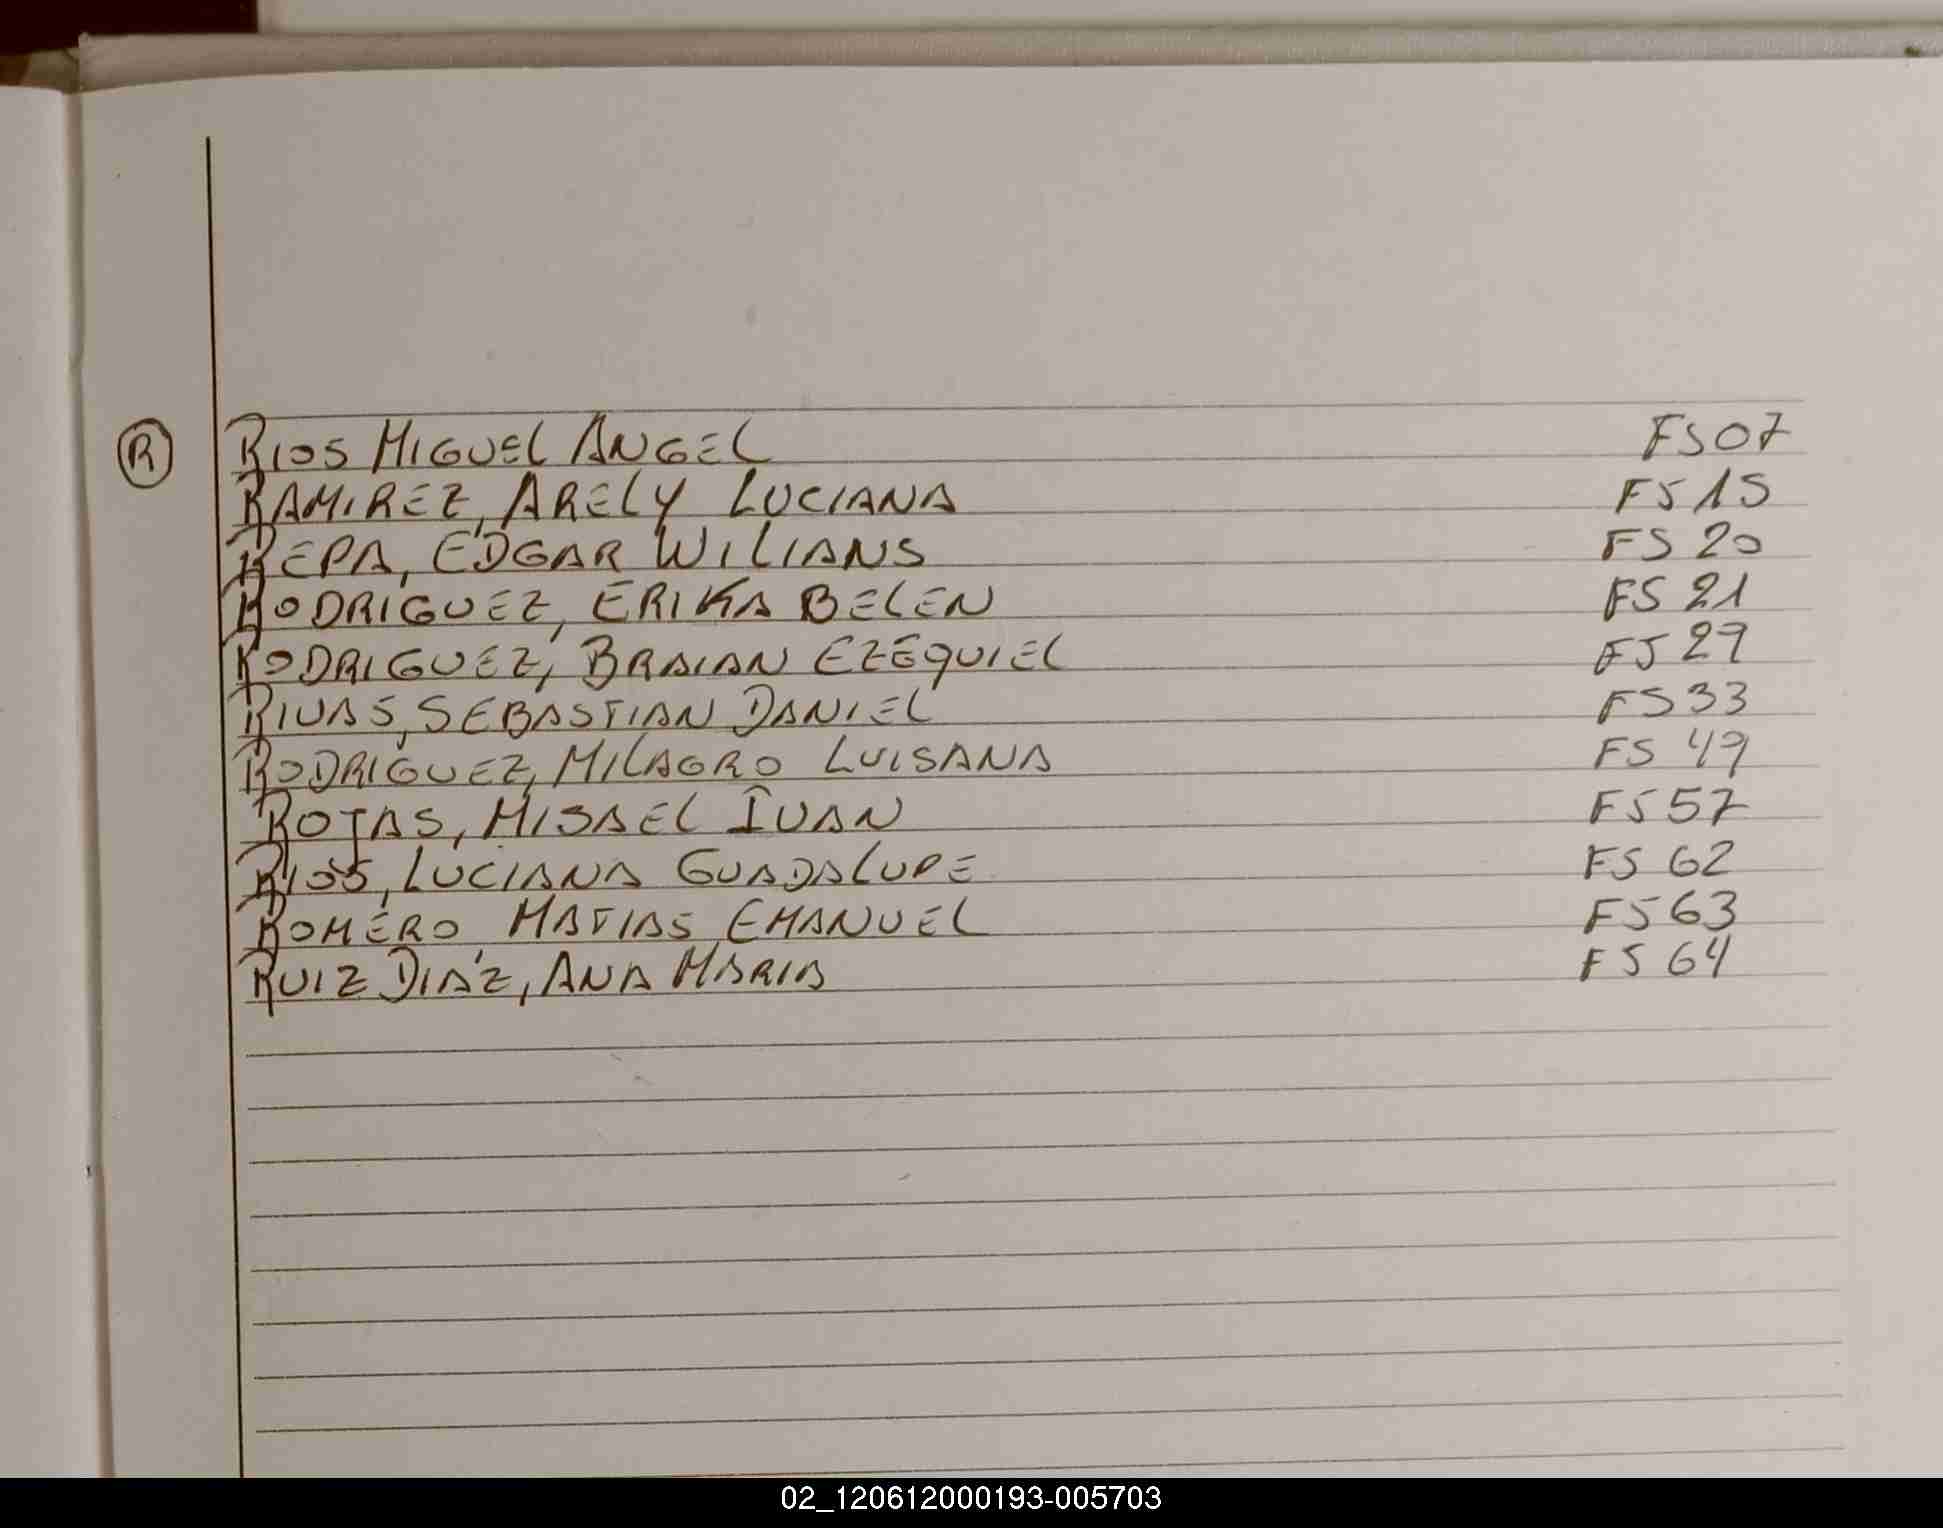 R RIOS MIGUEL ANGEL FS 07
RAMIREZ, ARELY LUCIANA FS 15
REPA, EDGAR WILIANS FS 20
RODRIGUEZ, ERIKA BELEN FS 21
RODRIGUEZ, BRAIAN EZEQUIEL FS 29
RIVAS, SEBASTIAN DANIEL FS 33
RODRIGUEZ, MILAGRO LUISANA FS 49
ROJAS, MISAEL IVAN FS 57
RIOS, LUCIANA GUADALUPE FS 62
ROMERO MATIAS EMANUEL FS 63
RUIZ DIAZ, ANA MARIA FS 64
02_120612000193-005703